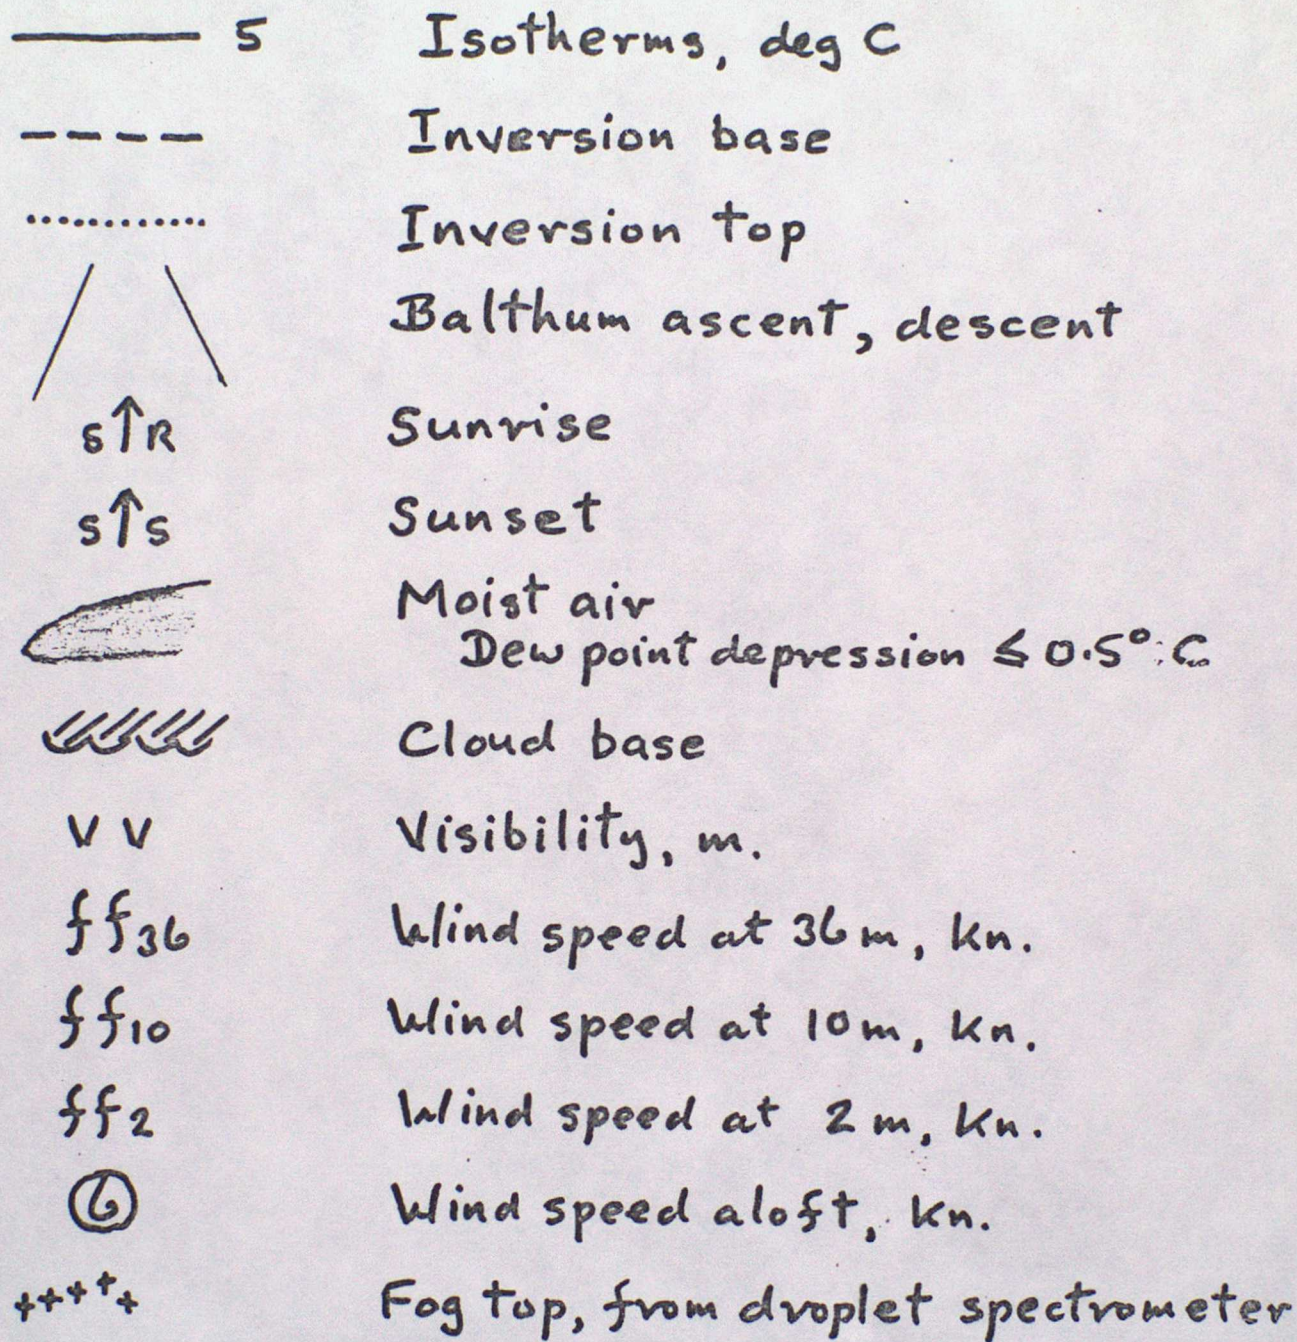 5 Isotherms, deg C
Inversion base
Inversion top
Balthum ascent, descent
S↑R Sunrise
S↑S Sunset
Moist air
Dew point depression ≤ 0.5° C
Cloud base
V V Visibility, m.
ff36 Wind speed at 36m, Kn.
ff10 Wind speed at 10m, Kn.
ff2 Wind speed at 2m, Kn.
6 Wind speed aloft, Kn.
Fog top, from droplet spectrometer